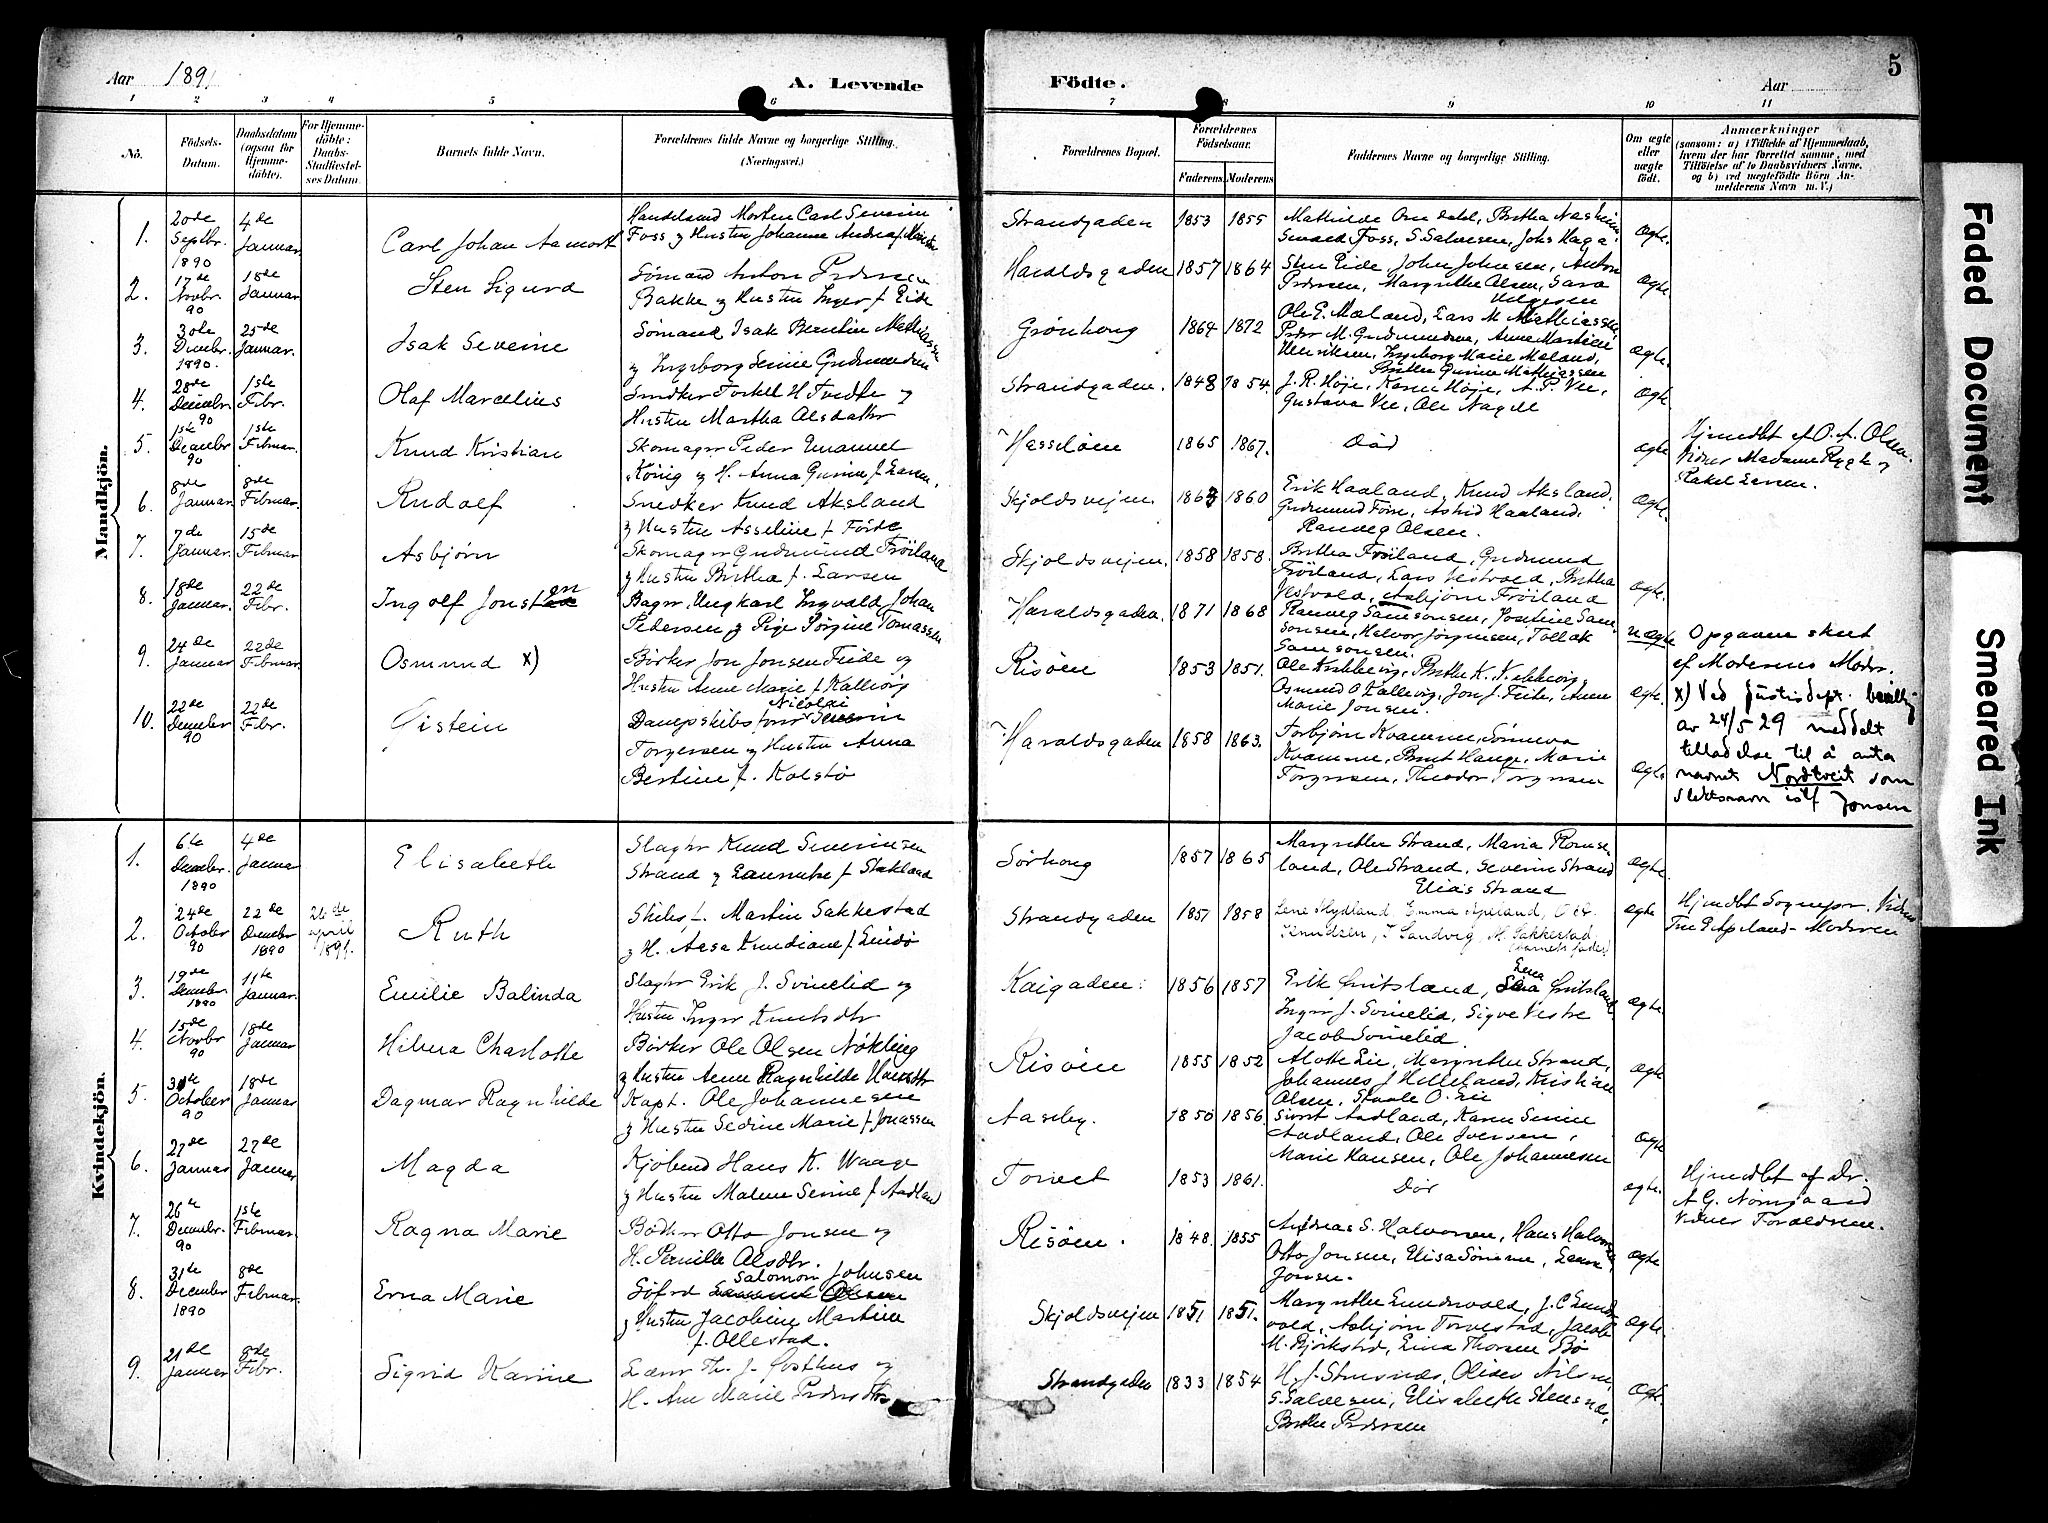 Aar 1891
A. Levende
Födte.
Aar
5
1 2 3 4 5 6 7 8 9 10 11
Nö.
Födsels-Datum.
Daabsdatum (ogsaa for Hjemme-döbte).
For Hjemme-döbte: Daabs-Stadfæstel-ses Datum.
Barnets fulde Navn.
Forældrenes fulde Navne og borgerlige Stilling. (Næringsvei.)
Forældrenes Bopæl.
Forældrenes Födselsaar.
Faderens Moderens
Faddernes Navne og borgerlige Stilling.
Om ægte eller uægte födt.
Anmærkninger
(saasom: a) i Tilfælde af Hjemmedaab, hvem der har forrettet samme, med Tilföielse af to Daabsvidners Navne, og b) ved uægtefödte Börn An-melderens Navn m. V.)
Mandkjön.
1. 20de Septbr. 1890 4de Januar Carl Johan
Foss og Hustru Johanne
Strandgaden 1853 1855 Mathilde
Foss, S. Salvesen, Johs Haga ægte.
2. 17de Novbr. 90 18de Januar Sten Sigurd
Sömand Anton Pedersen
Bakke og Hustru Inger f. Eide
Haraldsgaden 1857 1864 Sten Eide, John Johnsen, Anton
Pedersen, Margrethe Olsen, Sara
Helgesen ægte.
3. 30te Decebr. 1890. 25de Januar. Isak Severine
Sömand Isak Berntin Mathiassen
og Ingeborg Serine Gudmundsen
Grönhoug 1864 1872 Ole E. Mæland, Lars M. Mathiassen,
Peder M. Gudmundsen, Anne Martine
Henriksen, Ingeborg Marie Mæland,
Berthe Gurine Mathiassen ægte.
4. 28de Decebr. 90 1ste Febr. Olaf Marcelius
Snedker Torkel H. Tvedte og
Hustru Martha Olsdatter
Strandgaden. 1848 1854. J. R. Höje, Karen Höje, A. P. Vee,
Gustava Vee, Ole Nagel ægte
5. 1ste Decembr 90 1ste Februar. Knud Kristian
Skomager Peder Emanuel
König og H. Anna Gurine f. Larsen.
Hasselöen 1865 1867. Död ægte
Hjemdbt af O. A. Olsen.
Vidner Madame Rygh og
Rakel Larsen.
6. 8de Januar. 8de Februar. Rudolf
Snedker Knud Aksland
og Hustru Asseline f. Förde
Skjoldsvejen. 1863 1860 Erik Haaland, Knud Aksland,
Gudmund Förre, Astrid Haaland,
Ranveig Olsen. ægte.
7. 7de Januar. 15de Februar Asbjörn
Skomager Gudmund Fröiland
og Hustru Bertha f. Larsen
Skjoldsvejen. 1858 1858. Bertha Fröiland, Gudmund
Fröiland, Lars Vestvold, Bertha
Vestvold, Asbjörn Fröiland ægte.
8. 18de Januar. 22de Febr. Ingolf
Bager, Ungkarl Ingvald Johan
Pedersen og Pige Sörgine Tomassen
Haraldsgaden. 1871 1868 Ranveig Samsonsen, Josefine Sam-
sonsen, Halvor Jörgensen, Tollak
Samsonsen. uægte
Opgaven skeet
af Moderens Moder.
9. 24de Januar 22de Februar. Osmund x)
Börker Jon Jonsen Feide og
Hustru Anne Marie f. Kallevig
Risöen 1853 1851. Ole Kallevig, Berthe K. Kallevig,
Osmund O. Kallevig, Jon J. Feide, Anne
Marie Jonsen. ægte.
x) Ved Justisdept. bevillg
av 24/5 29 meddelt
tilladelse til å anta
navnet Nordtveit som
slektsnavn istf Jonsen
10. 22de Decmber 90 22de Febr. Öistein
Nicolai
Torgersen og Hustru Anna
Bertine f. Kolstö
Haraldsgaden 1858 1863. Torbjörn Kvamme, Sönneva
Kvamme, Berent Hauge, Marie
Torgersen, Theodor Torgersen ægte.
Kvindekjön.
1. 6te Decmber. 1890 4de Januar Elisabeth
Slagter Knud Severinsen
Strand og Hustru f. Stakland
Sörhoug 1857 1865 Margrethe Strand, Maria
Ole Strand, Severin Strand
Elias Strand ægte.
2. 24de October 90 22de Decmber 1890 26de april 1891. Ruth
Skibsf. Martin Sakkestad
og H. Aasa Knudiane f. Lindö
Strandgaden 1851 1858 Lene Mydland, Emma Apeland, O
Knudsen, J. Sandvig, M. Sakkestad
(Barnets fader) ægte
Hjemdbt Sogneprs. Vidner
Fru E. Apeland - Moderen
3. 19de Decmber 1890 11te Januar. Emilie Balinda
Slagter Erik J. Svinelid og
Hustru Inger Knutsdtr
Kaigaden. 1856 1857 Erik Guitsland, Lena Guitsland,
Inger J. Svinelid, Sigve Vestre
Jacob Svinelid. ægte.
4. 15de Novbr 90 18de Januar Hilma Charlotte
Börker Ole Olsen Nökling
og Hustru Anne Ragnhilde
Risöen 1855 1852 Alotte Eie, Margrethe Strand,
Johannes J. Helleland, Kristian
Olsen, Staale O. Eie ægte
5. October 90 18de Januar Dagmar Ragnhilde
Kapt. Ole Johannesen
og Hustru Sedine Marie f. Jonassen
Aasebg. 1850 1856. Sivert Aadland, Karen Serine
Aadland, Ole Iversen,
Marie Hansen, Ole Johannesen ægte
6. 27de Januar 27de Januar Magda
Kjöbmd Hans K. Waage
og Hustru Malene Serine f. Aadland
Torvet 1853 1861. Död ægte.
Hjemdbt af Dr.
A G. Nörregaard
Vidner Forældrene.
7. 26te Decmbr. 90 1ste Februar Ragna Marie
Bödker Otto Jonsen og
H. Pernille Olsdtr.
Risöen. 1848. 1855 Andreas S. Halvorsen, Hans Halvorsen
Otto Jonsen, Elisa Sömme, Lena
Jonsen. ægte
8. 31te December 1890 8de Februar. Erna Marie
Salomon Johnsen
Söfrd
og Hustru Jacobine Martine
f. Ollestad.
Skjoldsvejen 1851 1851. Margrethe Lundevold, J. C. Lunde-
vold, Asbjörn Torvestad, Jacob
M. Björkstrd, Lina Thorsen Bö ægte.
9. 21de Januar 8de Febr. Sigrid Karine
Lærer Th. J. Gosthus og
H. Ane Marie Pedersdtr
Strandgaden 1833 1854 H. J. Stensnes, Oliver Nilsen,
S. Salvesen, Elisabeth Stensnæ,
Berthe Pedersen ægte.
Faded Document
Smeared Ink